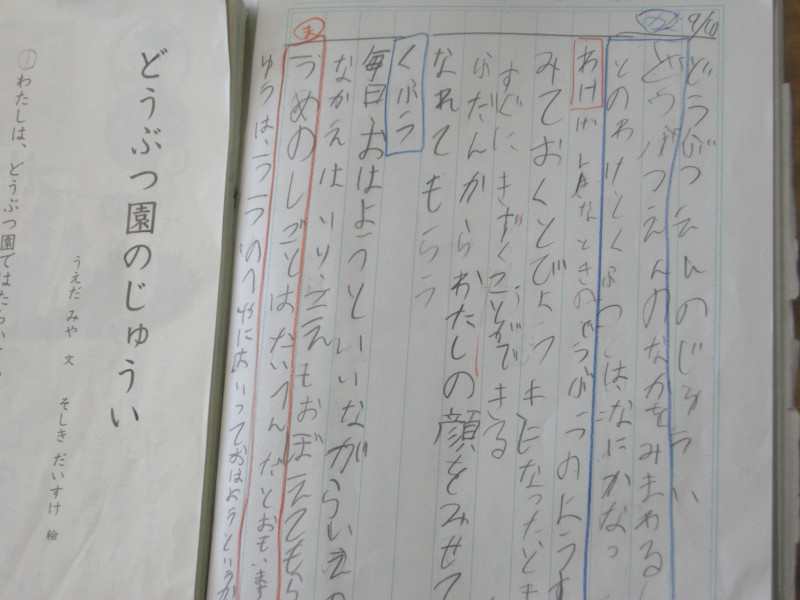 9/10
どうぶつえんのじゅうい
め
どうぶつえんのなかをみまわる
とのわけとくふうは、なにかなっ
わけ
げんきなときのどうぶつのようす
みておくとびょうきになったとき
すぐにきづくことができる
ふだんからわたしの顔をみせて
なれてもらう
くふう
毎日「おはよう」といいながらいえの
なかへはいり、こえもおぼえてもら
ま
うめのしごとはだいへんだとおもいます
ゆうは、一つ一つのへやにはいっておはようというが
どうぶつ園のじゅうい
うえだ みや 文
そしき だいすけ 絵
①わたしは、どうぶつ園ではたらいて